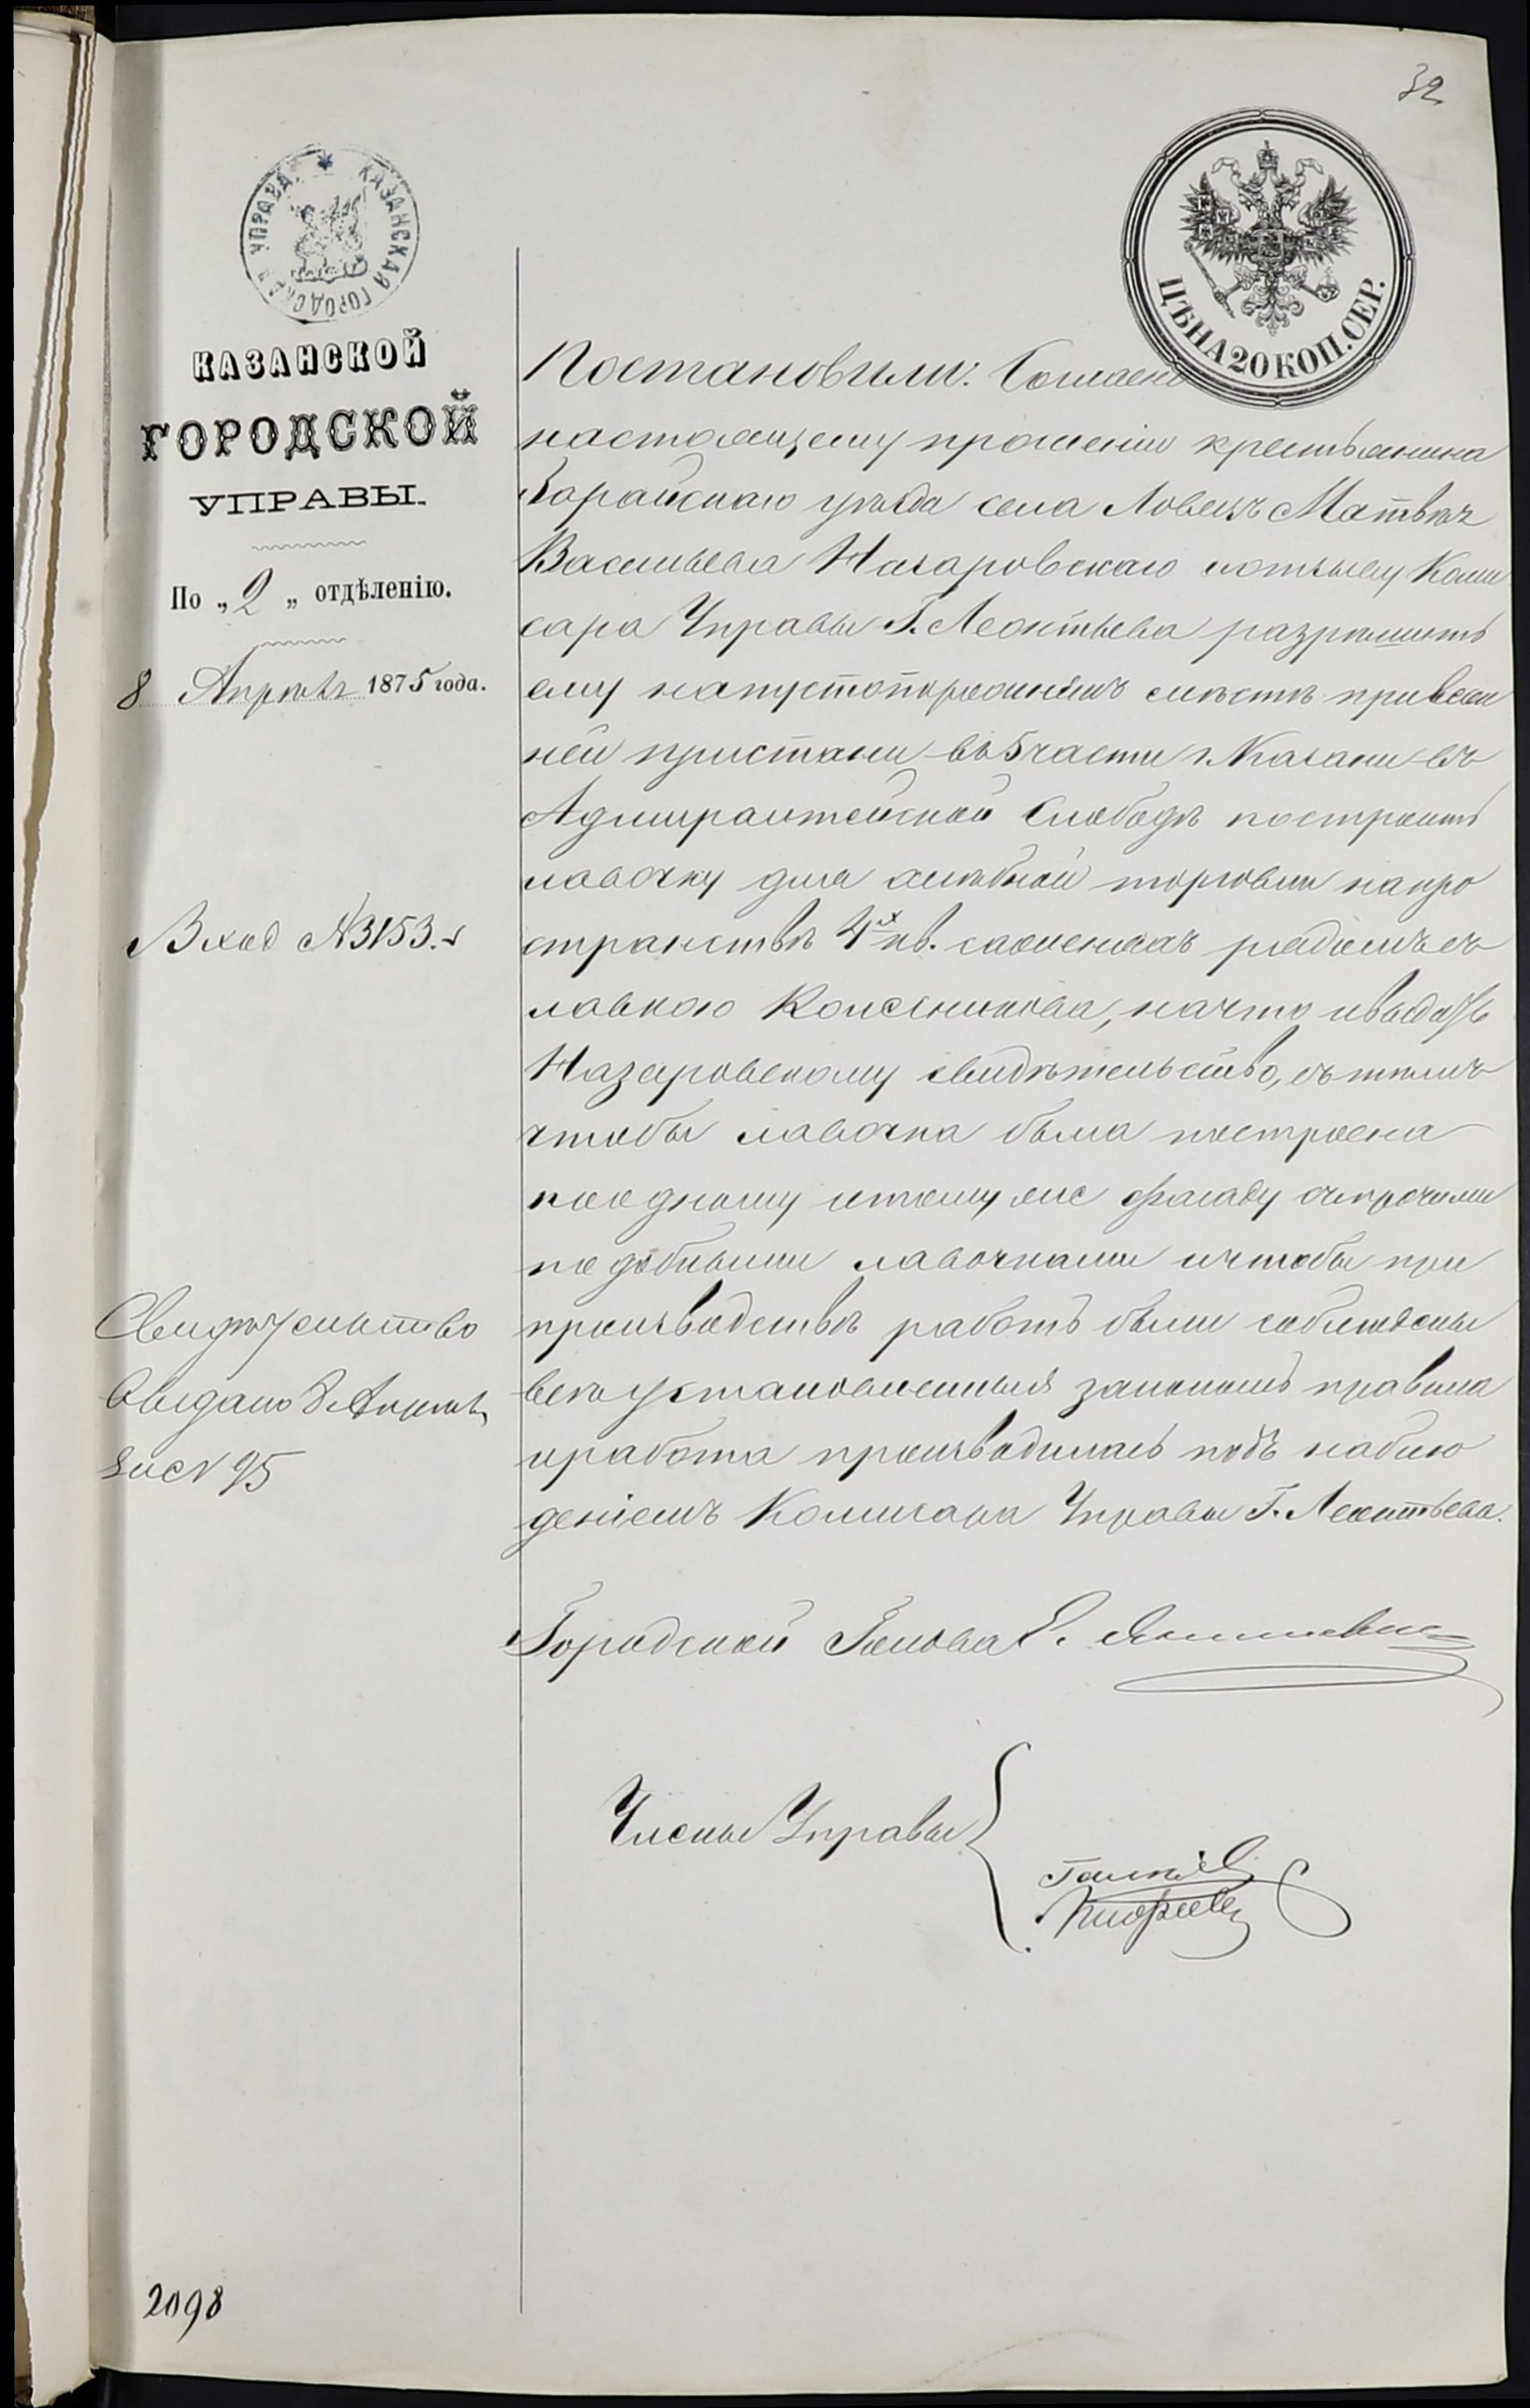 32
КАЗАНСКАЯ ГОРОДСКАЯ УПРАВА
ЦѢНА 20 КОП. СЕР.
КАЗАНСКОЙ
ГОРОДСКОЙ
УПРАВЫ.
По „2„ отдѣленію.
8 Апрѣля 1875 года.
Вход №3153.
Свидѣтельство
выдано 8 Апрѣля
за № 95
Постановили: Согласно
настоящему прошенію крестьянина
уѣзда села Ловецъ Матвѣя
Васильева Назаровскаго и отзыву Коми
сара Управы Г. Леонтьева разрѣшить
ему на пустопорожнемъ мѣстѣ при весен
ней пристани въ 5 части г. Казани въ
Адмиралтейской Слободѣ построить
лавочку для хлѣбной торговли на про
странствѣ 4х кв. саженяхъ рядомъ съ
лавкою Колесникова, на что и выдать
Назаровскому свидѣтельство, съ тѣмъ
чтобы лавочка была построена
по одному и тому же фасаду съ прочими
подобными лавочками и чтобы при
производствѣ работъ были соблюдены
всѣ установленныя закономъ правила
и работа производилась подъ наблю
деніемъ Комисара Управы Г. Леонтьева.
Городской Голова Е.
Члены Управы
2098